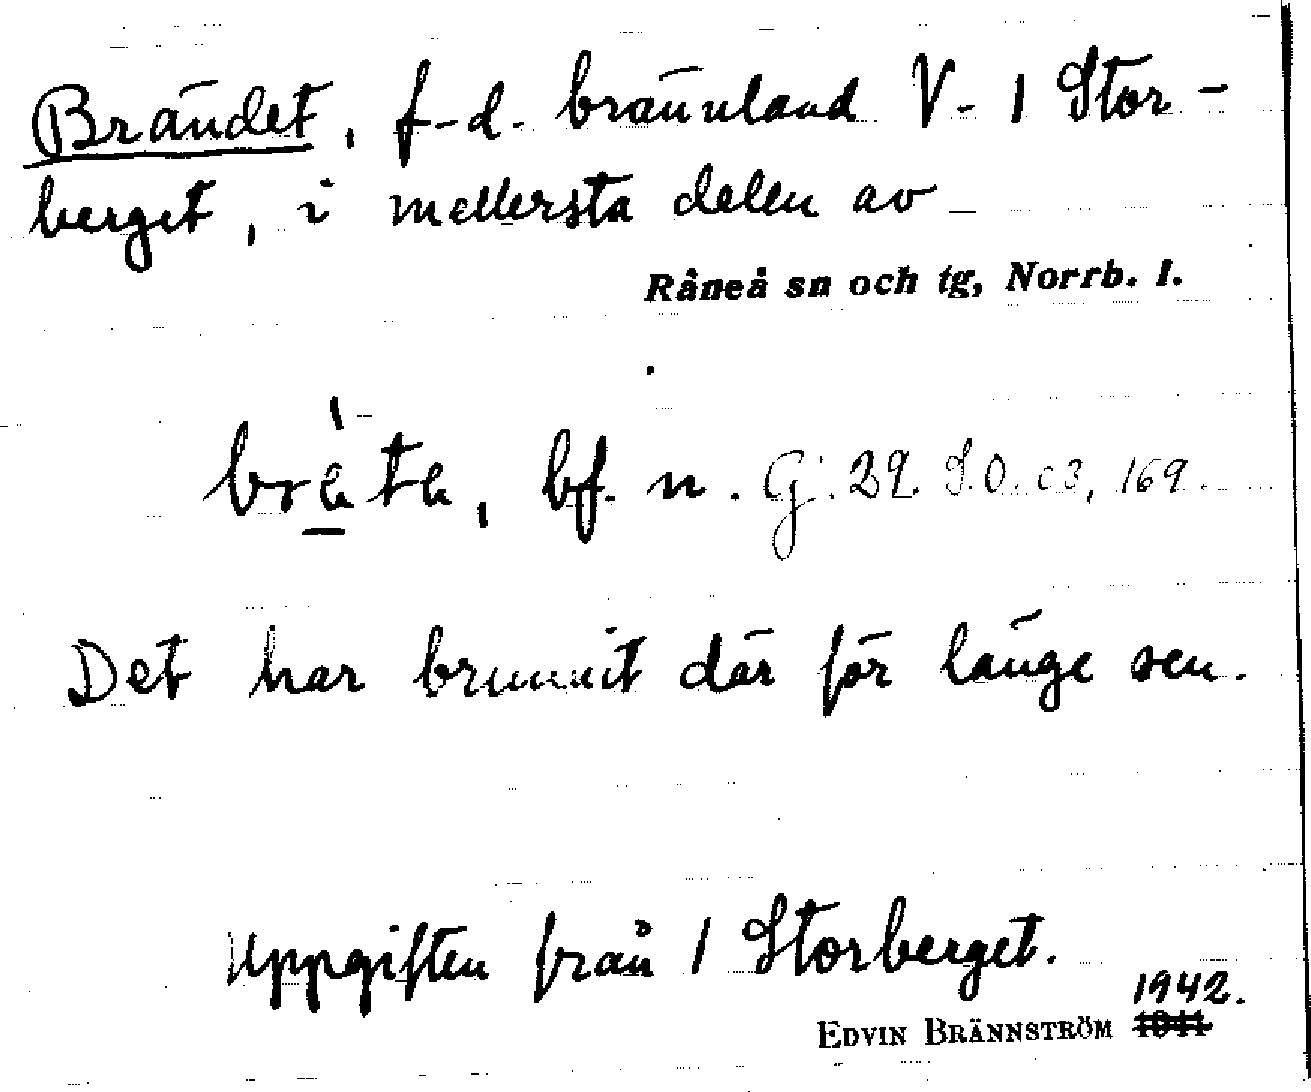 Brändet, f-d. brännland V- 1 Stor-
berget, i mellersta delen av
Råneå sn och tg, Norrb. l.
bf. n. G. 29. J.O. c3, 169.
Det har brunnit där för länge sen.
Uppgiften från 1 Storberget.
1942.
EDVIN BRÄNNSTRÖM 1941